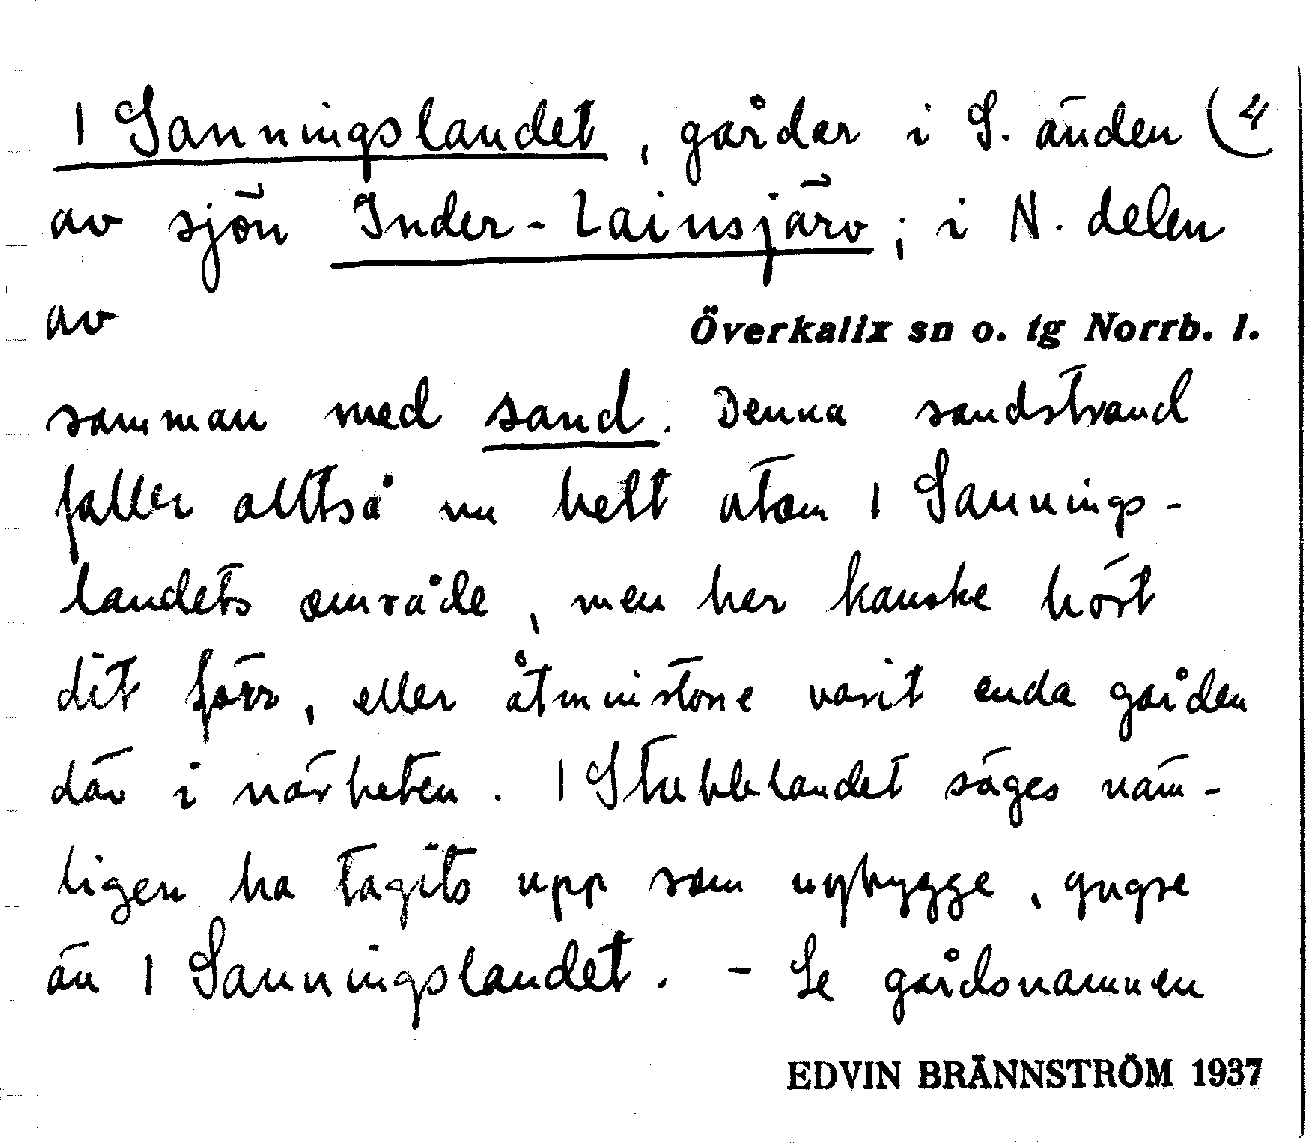 1 Sanningslandet, gårdar i S. änden (4
av sjön Inder-Lainsjärv; i N. delen
av Överkalix sn o. tg Norrb. l.
samman med sand. Denna sandstrand
faller alltså nu helt utom 1 Sannings-
landets område, men har kanske hört
dit förr, eller åtminstone varit enda gården
där i närheten. 1 Stubblandet säges näm-
ligen ha tagits upp som nybygge, yngre
än 1 Sanningslandet. - Se gårdsnamnen
EDVIN BRÄNNSTRÖM 1937